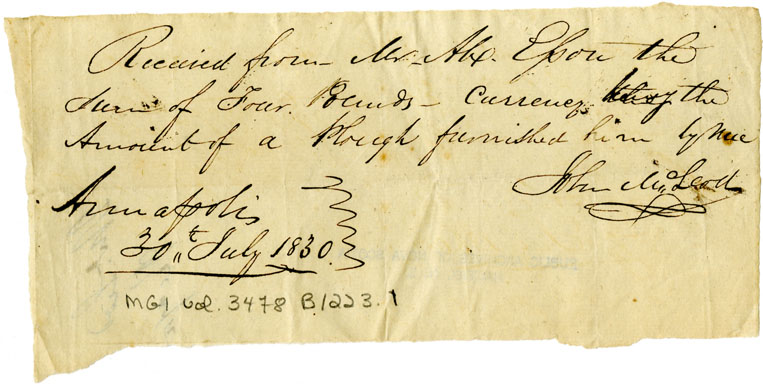 Received from Mr. Alx. Eson the
Sum of Four Pounds - Currency being the
Amount of a Plough furnished him by Mee
John McLeod
Annapolis
30th July 1830.
MG1 vol. 3478 B1223.1